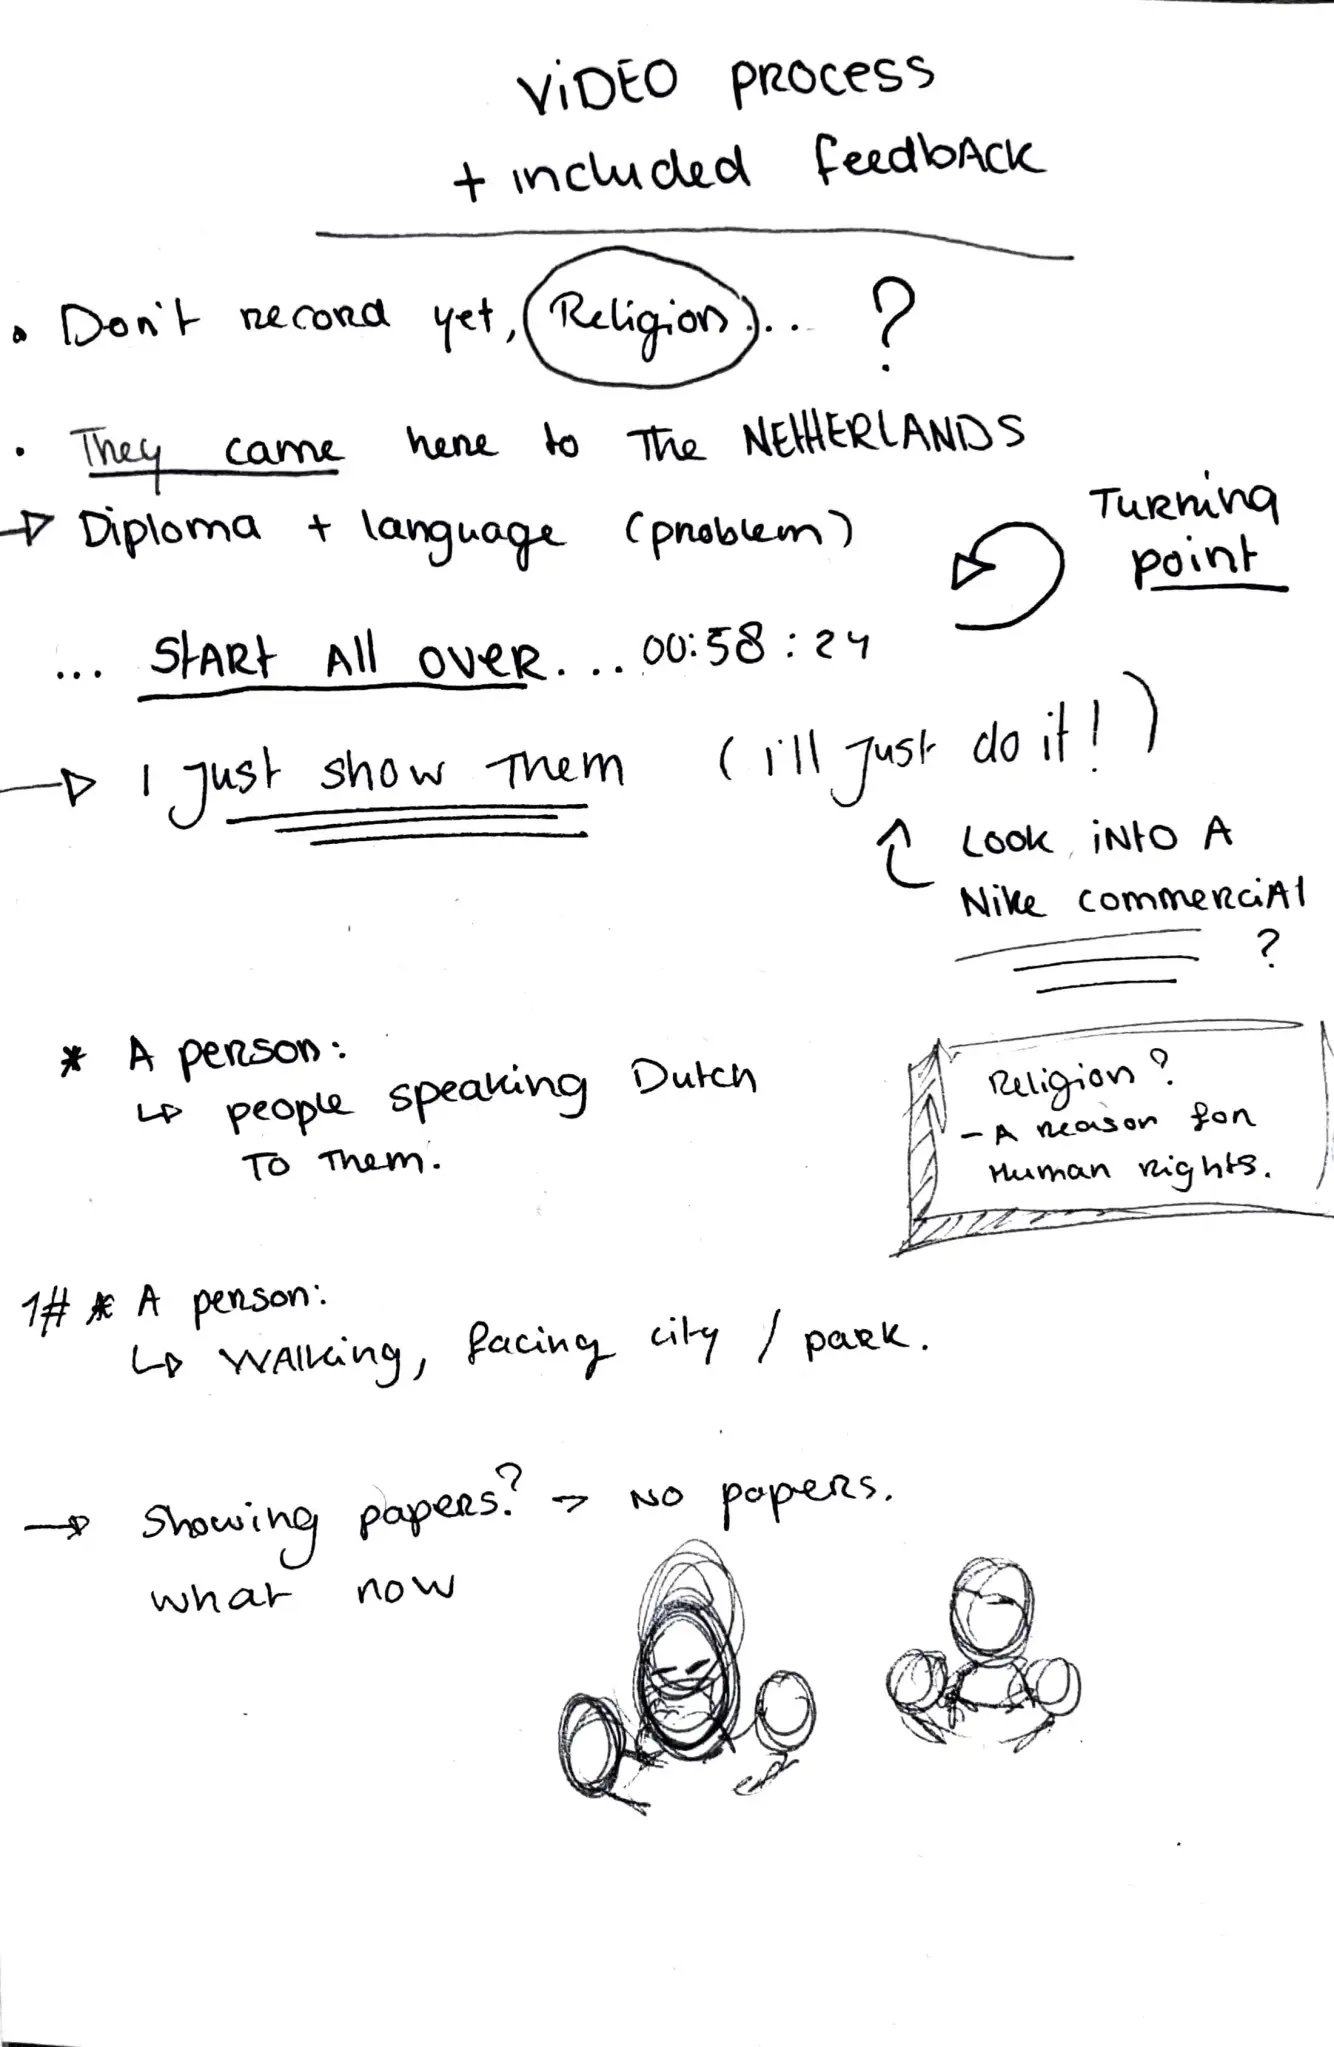 ViDEO PROCESS
+ included feedbACK
• Don't record yet, Religion... ?
• They came here to The NETHERLANDS
→ Diploma + language (problem)
Turning
point
... StARt All over... 00:58:24
→ I just show Them (i'll just do it!)
Look iNtO A
Nike commerciAl
?
* A person:
↳ people speaking Dutch
To Them.
Religion?
- A reason for
Human rights.
1# * A person:
↳ WAlking, facing city / park.
→ Showing papers? → No papers.
what now